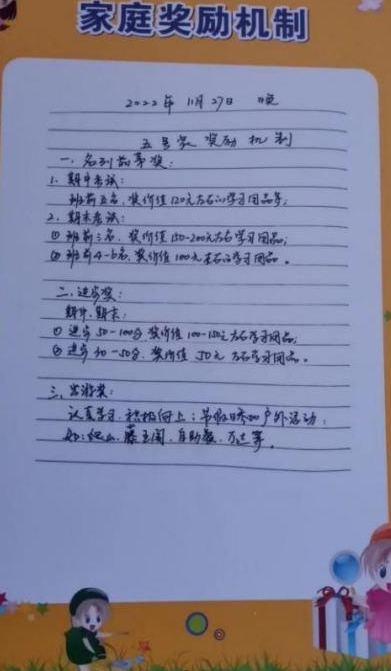 家庭奖励机制
2022年11月27日 晚
五号家 奖励机制
一、名列前茅奖：
1. 期中考试：
班前五名，奖价值120元左右的学习用品等；
2. 期末考试：
① 班前三名，奖价值150-200元左右学习用品；
② 班前4-6名，奖价值100元左右的学习用品。
二、进步奖：
期中、期末：
① 进步50-100名 奖价值100-150元左右学习用品；
② 进步30-50名，奖价值50元左右学习用品。
三、出游奖：
认真学习，积极向上：节假日参加户外活动，
如：爬山、藤王阁、自助餐、万达等。